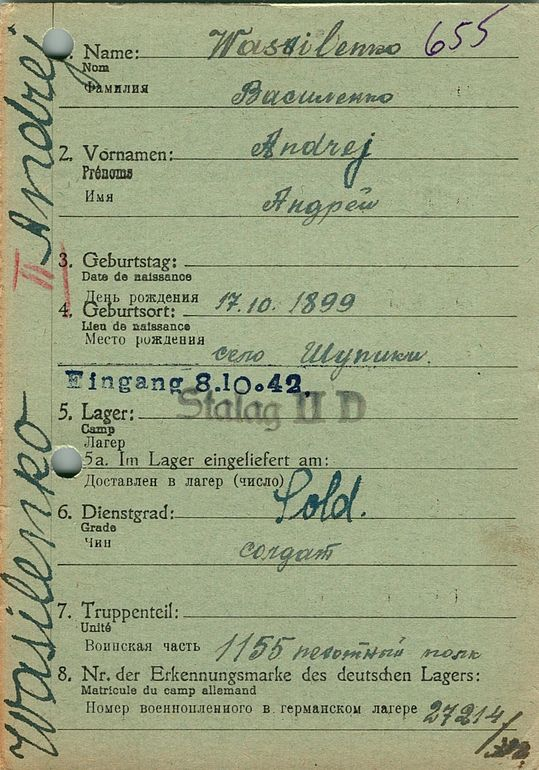 Wasilenko Andrej
II
655
1. Name: Wassilenko
Nom
Фамилия Василенко
2. Vornamen: Andrej
Prénoms
Имя Андрей
3. Geburtstag:
Date de naissance
День рождения 17.10.1899
4. Geburtsort:
Lieu de naissance
Место рождения село Шупики.
Eingang 8.10.42.
5. Lager: Stalag II D
Camp
Лагер
5a. Im Lager eingeliefert am:
Доставлен в лагер (число)
6. Dienstgrad: Sold.
Grade
Чин солдат
7. Truppenteil:
Unité
Воинская часть 1155 пехотный полк
8. Nr. der Erkennungsmarke des deutschen Lagers:
Matricule du camp allemand
Номер военнопленного в германском лагере 27214/